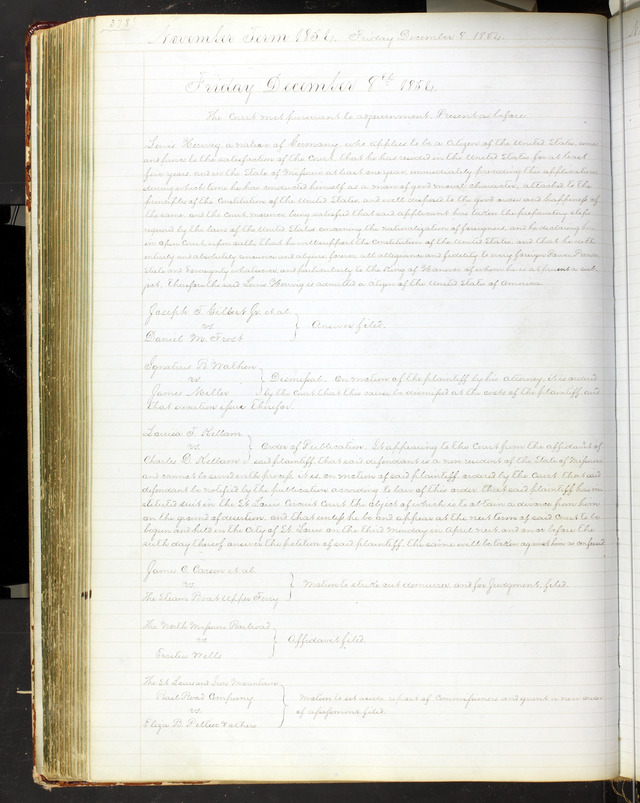 378
November Term 1854. Friday December 8 1854.
Friday December 8th 1854
The Court met pursuant to adjournment. Present as before
Louis Herwig a native of Germany, who applies to be a citizen of the United States, comes
and proves to the satisfaction of the Court that he has resided in the United States for at least
five years, and in the State of Missouri at least one year, immediately preceding this application,
during which time he has conducted himself as a man of good moral character, attached to the
principles of the Constitution of the United States, and well disposed to the good order and happiness of
the same, and the Court moreover being satisfied that said applicant has taken the preparatory steps
required by the laws of the United States concerning the naturalization of foreigners, and he declaring here
in open Court upon oath, that he will support the Constitution of the United States, and that he doth
entirely and absolutely renounce and abjure forever all allegiance and fidelity to every foreign Power, Prince,
State and Sovereignty whatsoever, and particularly to the King of Hanover of whom he is at present a sub-
ject. Therefore the said Louis Herwig is admitted a citizen of the United States of America
Joseph T. Gilbert Jr. et al.
vs
Daniel M. Frost
Answer filed.
Ignatius R.
vs
James Miller
Dismissal. On motion of the plaintiff by his attorney, it is ordered
by the Court that this cause be dismissed at the costs of the plaintiff, and
that execution issue therefor.
Louisa T. Killam
vs
Charles D. Killam
Order of Publication. It appearing to the Court from the affidavit of
said plaintiff that said defendant is a non resident of the State of Missouri
and cannot be served with process, it is on motion of said plaintiff ordered by the Court that said
defendant be notified by the publication according to law of this order that said plaintiff has in-
stituted suit in the St Louis Circuit Court the object of which is to obtain a divorce from him
on the ground of desertion, and that unless he be and appear at the next term of said Court to be
begun and held in the City of St Louis on the third Monday in April next and on or before the
sixth day thereof answer the petition of said plaintiff, the same will be taken against him as confessed.
James C. Carson et al
vs
The Steam Boat Upper Ferry
Motion to strike out demurrer, and for Judgment, filed.
The North Missouri Railroad
vs
Erastus Wells
Affidavit filed
The St Louis and Iron Mountain
Rail Road Company
vs
Eliza B.
Motion to set aside report of Commissioners and grant a new order
of assessment, filed.